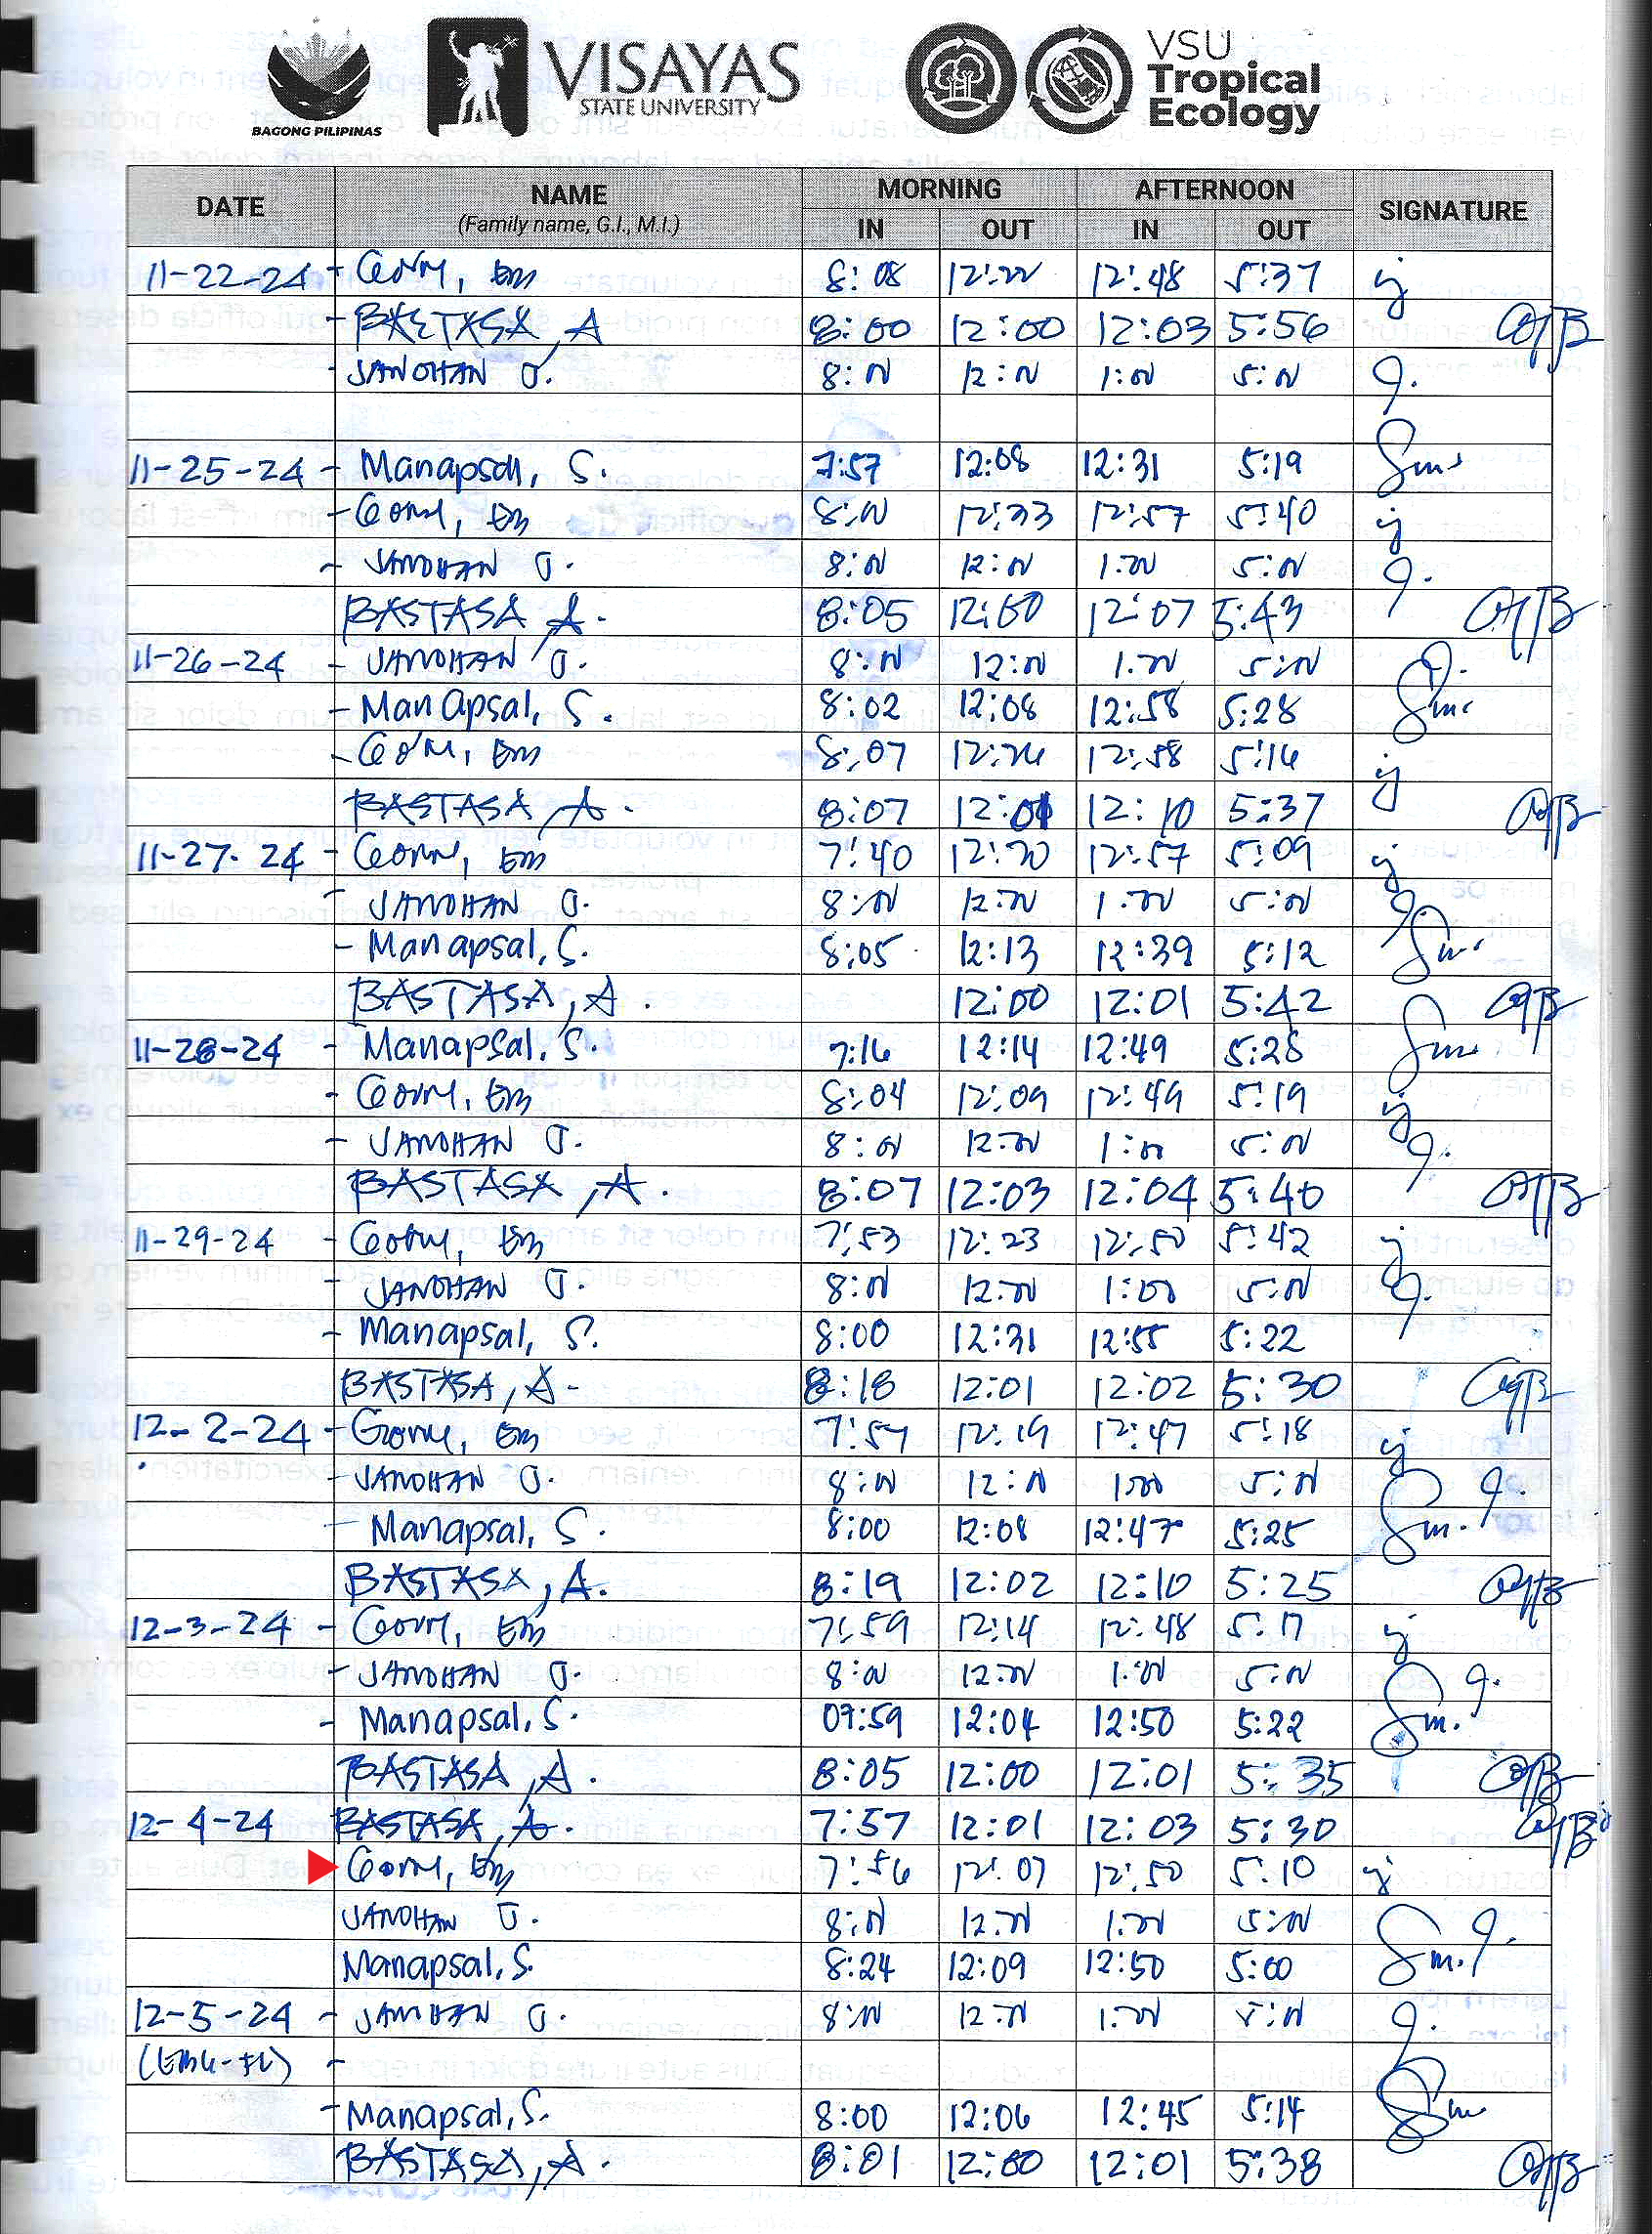 BAGONG PILIPINAS
VISAYAS
STATE UNIVERSITY
VSU
Tropical
Ecology
DATE NAME MORNING AFTERNOON SIGNATURE
(Family name, G.I., M.I.) IN OUT IN OUT
11-22-24 - Em 8:08 12:22 12:48 5:37
- BASTASA, A 8:00 12:00 12:03 5:56
- JANOHAN J. 8:00 12:00 1:00 5:00
11-25-24 - Manapsal, S. 7:57 12:08 12:31 5:19
- Em 8:00 12:33 12:57 5:40
- JANOHAN J. 8:00 12:00 1:00 5:00
BASTASA, A. 8:05 12:00 12:07 5:43
11-26-24 - JANOHAN J. 8:00 12:00 1:00 5:00
- Manapsal, S. 8:02 12:08 12:58 5:28
- Em 8:07 12:26 12:58 5:16
BASTASA, A. 8:07 12:01 12:10 5:37
11-27-24 - Em 7:40 12:20 12:57 5:09
- JANOHAN J. 8:00 12:00 1:00 5:00
- Manapsal, S. 8:05 12:13 12:39 5:12
BASTASA, A. 12:00 12:01 5:42
11-28-24 - Manapsal, S. 7:16 12:14 12:49 5:28
- Em 8:04 12:09 12:49 5:19
- JANOHAN J. 8:00 12:00 1:00 5:00
BASTASA, A. 8:07 12:03 12:04 5:40
11-29-24 - Em 7:53 12:23 12:50 5:42
- JANOHAN J. 8:00 12:00 1:00 5:00
- Manapsal, S. 8:00 12:31 12:55 5:22
BASTASA, A- 8:18 12:01 12:02 5:30
12-2-24 - Em 7:57 12:19 12:47 5:18
- JANOHAN J. 8:00 12:00 1:00 5:00
- Manapsal, S. 8:00 12:08 12:47 5:25
BASTASA, A. 8:19 12:02 12:10 5:25
12-3-24 - Em 7:59 12:14 12:48 5:17
- JANOHAN J. 8:00 12:00 1:00 5:00
- Manapsal, S. 07:59 12:04 12:50 5:22
BASTASA, A. 8:05 12:00 12:01 5:35
12-4-24 BASTASA, A. 7:57 12:01 12:03 5:30
Em 7:56 12:07 12:50 5:10
JANOHAN J. 8:00 12:00 1:00 5:00
Manapsal, S. 8:24 12:09 12:50 5:00
12-5-24 - JANOHAN J. 8:00 12:00 1:00 5:00
- Manapsal, S. 8:00 12:06 12:45 5:14
BASTASA, A. 8:01 12:00 12:01 5:38